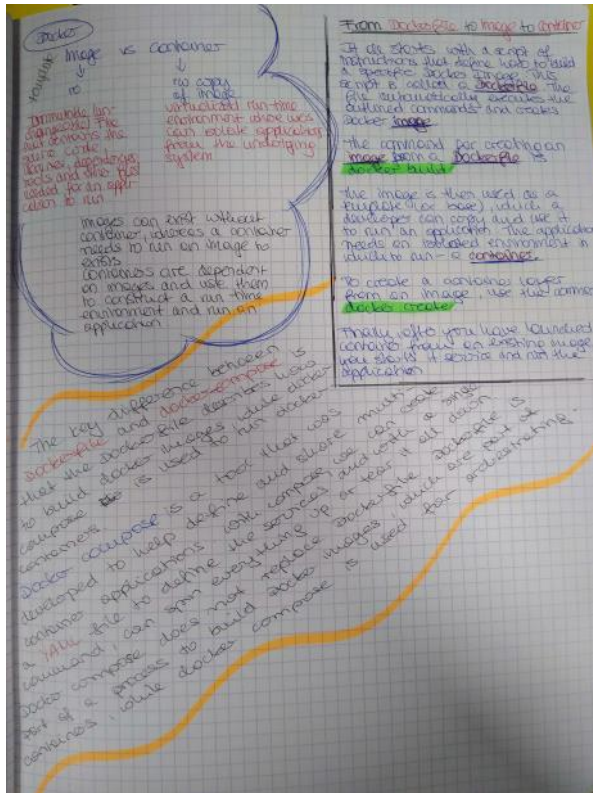 Docker
Image vs Container
template
no
no copy
of image
immutable (un-
changeable) file
that contains the
source code,
libraries, dependencies,
tools and other files
needed for an appli-
cation to run
virtualized run-time
environment where users
can isolate applications
from the underlying
system
images can exist without
container, whereas a container
needs to run an image to
exists
containers are dependent
on images and use them
to construct a run-time
environment and run an
application
From Dockerfile to Image to Container
It all starts with a script of
instructions that define how to build
a specific Docker image. This
script is called a Dockerfile. The
file automatically executes the
outlined commands and creates
Docker image
The command for creating an
image from a Dockerfile is
docker build
The image is then used as a
template (or base), which a
developer can copy and use it
to run an application. The application
needs an isolated environment in
which to run - a container.
To create a container layer
from an image, use the command
docker create
Finally, after you have launched
container from an existing image,
you start it service and run the
application
The key difference between
Dockerfile and docker-compose is
that the Dockerfile describes how
to build docker images while docker
compose is used to run docker
containers
Docker compose is a tool that was
developed to help define and share multi-
container applications. With compose we can create
a YAML file to define the services and with a single
command, can spin everything up or tear it all down
Docker compose does not replace Dockerfile. Dockerfile is
part of a process to build Docker images, which are part of
containers, while docker compose is used for orchestrating.